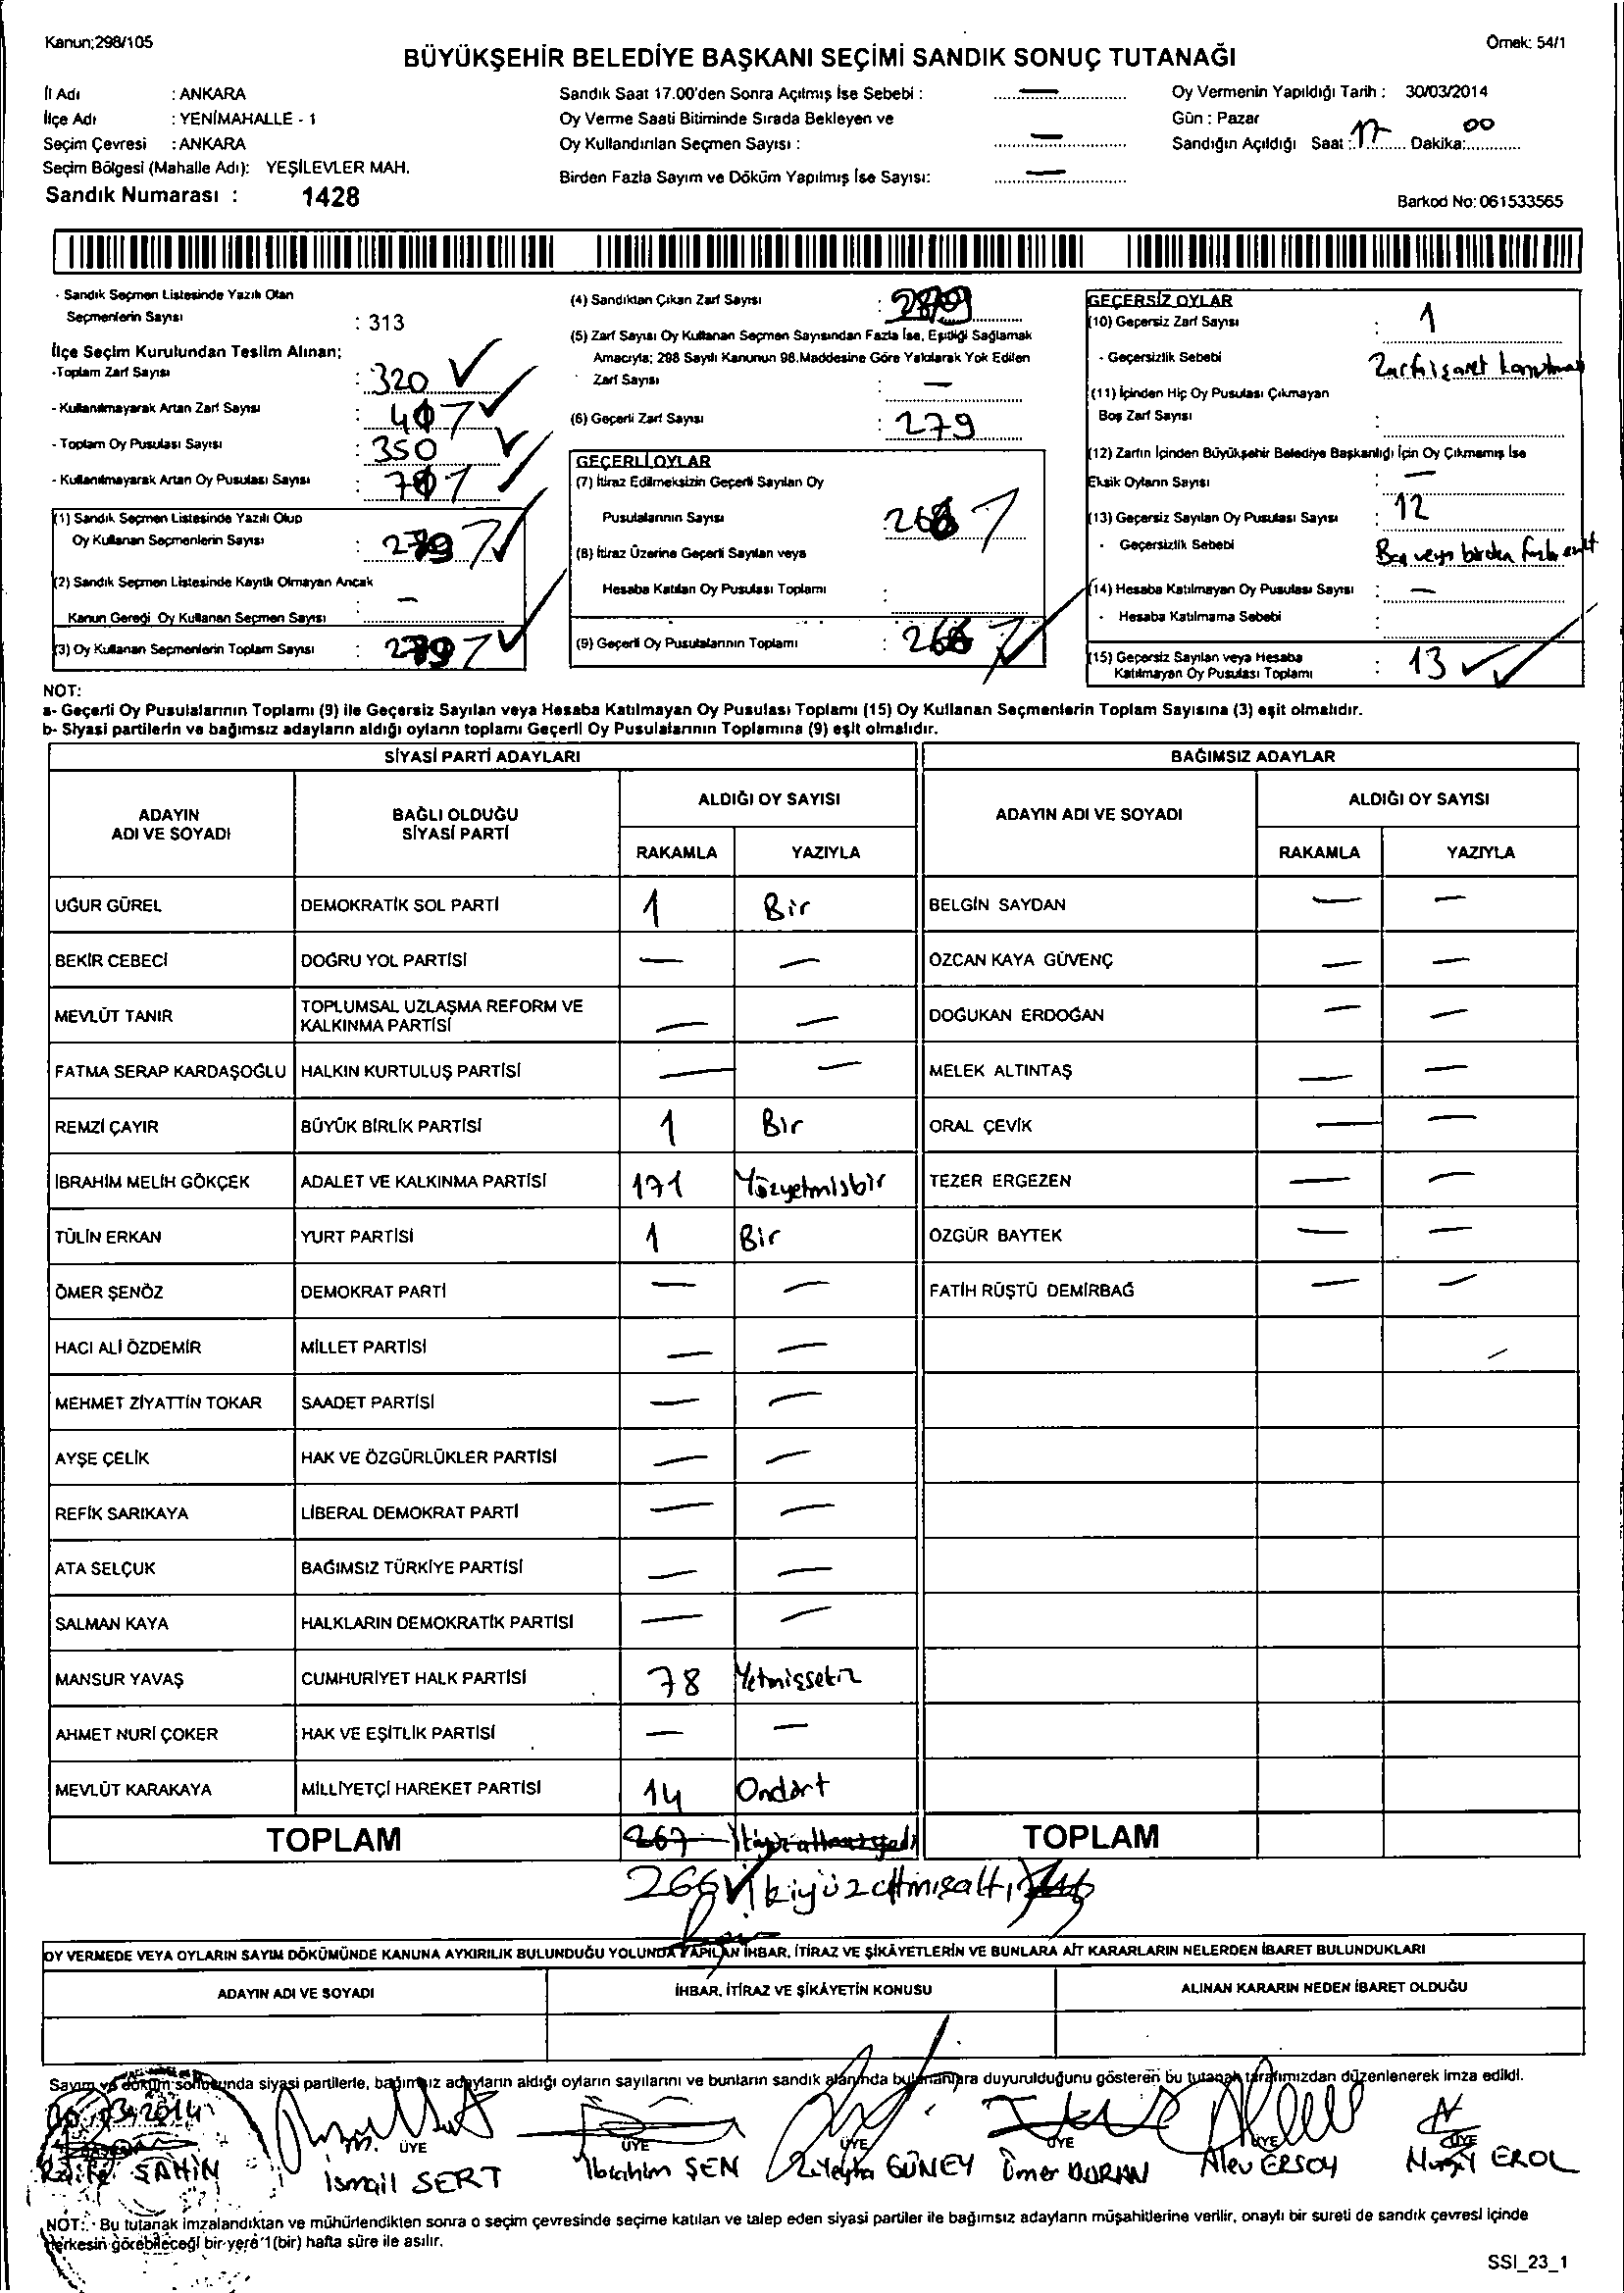 Kanun;298/105
Örnek: 54/1
BÜYÜKŞEHİR BELEDİYE BAŞKANI SEÇİMİ SANDIK SONUÇ TUTANAĞI
İl Adı : ANKARA
İlçe Adı : YENİMAHALLE - 1
Seçim Çevresi : ANKARA
Seçim Bölgesi (Mahalle Adı): YEŞİLEVLER MAH.
Sandık Numarası : 1428
Sandık Saat 17.00'den Sonra Açılmış İse Sebebi : —
Oy Verme Saati Bitiminde Sırada Bekleyen ve
Oy Kullandırılan Seçmen Sayısı : —
Birden Fazla Sayım ve Döküm Yapılmış İse Sayısı: —
Oy Vermenin Yapıldığı Tarih : 30/03/2014
Gün : Pazar
Sandığın Açıldığı Saat : 17 Dakika: 00
Barkod No: 061533565
- Sandık Seçmen Listesinde Yazılı Olan
Seçmenlerin Sayısı : 313
İlçe Seçim Kurulundan Teslim Alınan;
-Toplam Zarf Sayısı : 320
- Kullanılmayarak Artan Zarf Sayısı :
- Toplam Oy Pusulası Sayısı : 350
- Kullanılmayarak Artan Oy Pusulası Sayısı :
(1) Sandık Seçmen Listesinde Yazılı Olup
Oy Kullanan Seçmenlerin Sayısı : 279
(2) Sandık Seçmen Listesinde Kayıtlı Olmayan Ancak
Kanun Gereği Oy Kullanan Seçmen Sayısı —
(3) Oy Kullanan Seçmenlerin Toplam Sayısı : 279
(4) Sandıktan Çıkan Zarf Sayısı :
(5) Zarf Sayısı Oy Kullanan Seçmen Sayısından Fazla İse, Eşitliği Sağlamak
Amacıyla; 298 Sayılı Kanunun 98.Maddesine Göre Yakılarak Yok Edilen
Zarf Sayısı : —
(6) Geçerli Zarf Sayısı : 279
GEÇERLİ OYLAR
(7) İtiraz Edilmeksizin Geçerli Sayılan Oy
Pusulalarının Sayısı : 266
(8) İtiraz Üzerine Geçerli Sayılan veya
Hesaba Katılan Oy Pusulası Toplamı :
(9) Geçerli Oy Pusulalarının Toplamı : 266
GEÇERSİZ OYLAR
(10) Geçersiz Zarf Sayısı : 1
- Geçersizlik Sebebi
(11) İçinden Hiç Oy Pusulası Çıkmayan
Boş Zarf Sayısı :
(12) Zarfın İçinden Büyükşehir Belediye Başkanlığı İçin Oy Çıkmamış İse
Eksik Oyların Sayısı : —
(13) Geçersiz Sayılan Oy Pusulası Sayısı : 12
- Geçersizlik Sebebi Boş veya birden fazla evet
(14) Hesaba Katılmayan Oy Pusulası Sayısı : —
- Hesaba Katılmama Sebebi :
(15) Geçersiz Sayılan veya Hesaba
Katılmayan Oy Pusulası Toplamı : 13
NOT:
a- Geçerli Oy Pusulalarının Toplamı (9) ile Geçersiz Sayılan veya Hesaba Katılmayan Oy Pusulası Toplamı (15) Oy Kullanan Seçmenlerin Toplam Sayısına (3) eşit olmalıdır.
b- Siyasi partilerin ve bağımsız adayların aldığı oyların toplamı Geçerli Oy Pusulalarının Toplamına (9) eşit olmalıdır.
SİYASİ PARTİ ADAYLARI BAĞIMSIZ ADAYLAR
ADAYIN ADI VE SOYADI BAĞLI OLDUĞU SİYASİ PARTİ ALDIĞI OY SAYISI ADAYIN ADI VE SOYADI ALDIĞI OY SAYISI
RAKAMLA YAZIYLA RAKAMLA YAZIYLA
UĞUR GÜREL DEMOKRATİK SOL PARTİ 1 Bir BELGİN SAYDAN — —
BEKİR CEBECİ DOĞRU YOL PARTİSİ — — ÖZCAN KAYA GÜVENÇ — —
MEVLÜT TANIR TOPLUMSAL UZLAŞMA REFORM VE KALKINMA PARTİSİ — — DOĞUKAN ERDOĞAN — —
FATMA SERAP KARDAŞOĞLU HALKIN KURTULUŞ PARTİSİ — — MELEK ALTINTAŞ — —
REMZİ ÇAYIR BÜYÜK BİRLİK PARTİSİ 1 Bir ORAL ÇEVİK — —
İBRAHİM MELİH GÖKÇEK ADALET VE KALKINMA PARTİSİ 171 Yüzyetmişbir TEZER ERGEZEN — —
TÜLİN ERKAN YURT PARTİSİ 1 Bir ÖZGÜR BAYTEK — —
ÖMER ŞENÖZ DEMOKRAT PARTİ — — FATİH RÜŞTÜ DEMİRBAĞ — —
HACI ALİ ÖZDEMİR MİLLET PARTİSİ — —
MEHMET ZİYATTİN TOKAR SAADET PARTİSİ — —
AYŞE ÇELİK HAK VE ÖZGÜRLÜKLER PARTİSİ — —
REFİK SARIKAYA LİBERAL DEMOKRAT PARTİ — —
ATA SELÇUK BAĞIMSIZ TÜRKİYE PARTİSİ — —
SALMAN KAYA HALKLARIN DEMOKRATİK PARTİSİ — —
MANSUR YAVAŞ CUMHURİYET HALK PARTİSİ 78 Yetmişsekiz
AHMET NURİ ÇOKER HAK VE EŞİTLİK PARTİSİ — —
MEVLÜT KARAKAYA MİLLİYETÇİ HAREKET PARTİSİ 14 Ondört
TOPLAM 267 ikiyüzaltmışyedi TOPLAM
266 ikiyüzaltmışaltı
OY VERMEDE VEYA OYLARIN SAYIM DÖKÜMÜNDE KANUNA AYKIRILIK BULUNDUĞU YOLUNDA YAPILAN İHBAR, İTİRAZ VE ŞİKÂYETLERİN VE BUNLARA AİT KARARLARIN NELERDEN İBARET BULUNDUKLARI
ADAYIN ADI VE SOYADI İHBAR, İTİRAZ VE ŞİKÂYETİN KONUSU ALINAN KARARIN NEDEN İBARET OLDUĞU
Sayım ve döküm sonucunda siyasi partilerle, bağımsız adayların aldığı oyların sayılarını ve bunların sandık alanında bulunanlara duyurulduğunu gösteren bu tutanak tarafımızdan düzenlenerek imza edildi.
ÜYE ÜYE ÜYE ÜYE ÜYE ÜYE
ŞAHİN İsmail SERT İbrahim ŞEN Züleyha GÜNEY Ömer DURAN Alev ERSOY EROL
NOT: Bu tutanak imzalandıktan ve mühürlendikten sonra o seçim çevresinde seçime katılan ve talep eden siyasi partiler ile bağımsız adayların müşahitlerine verilir, onaylı bir sureti de sandık çevresi içinde
herkesin görebileceği bir yere 1(bir) hafta süre ile asılır.
SSI_23_1